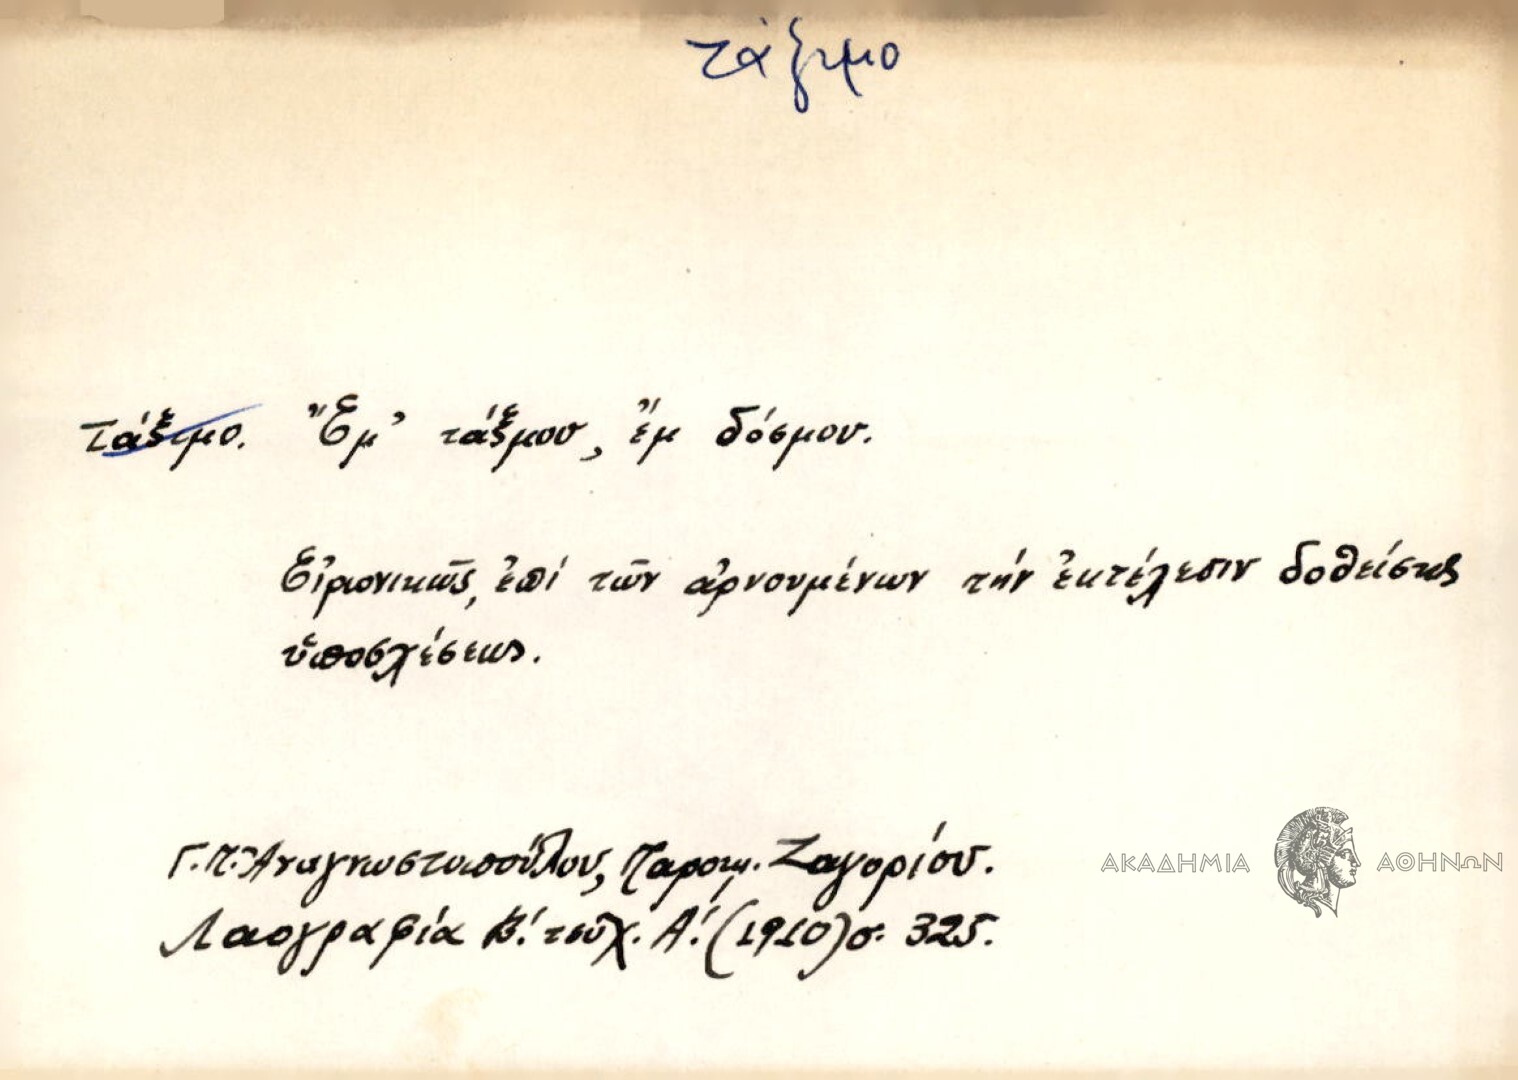 τάξιμο
τάξιμο. Ἔμ' τάξμου, ἔμ δόσμου.
Εἰρωνικῶς, ἐπί τῶν ἀρνουμένων τήν ἐκτέλεσιν δοθείσης
ὑποσχέσεως.
Γ.Π. Ἀναγνωστοπούλου, Παροιμ. Ζαγορίου.
Λαογραφία Β΄. τεῦχ. Α΄. (1910) σ. 325.
ΑΚΑΔΗΜΙΑ ΑΘΗΝΩΝ